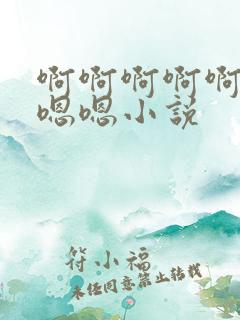 啊啊啊啊啊
嗯嗯小说
符小福
未经同意禁止转载